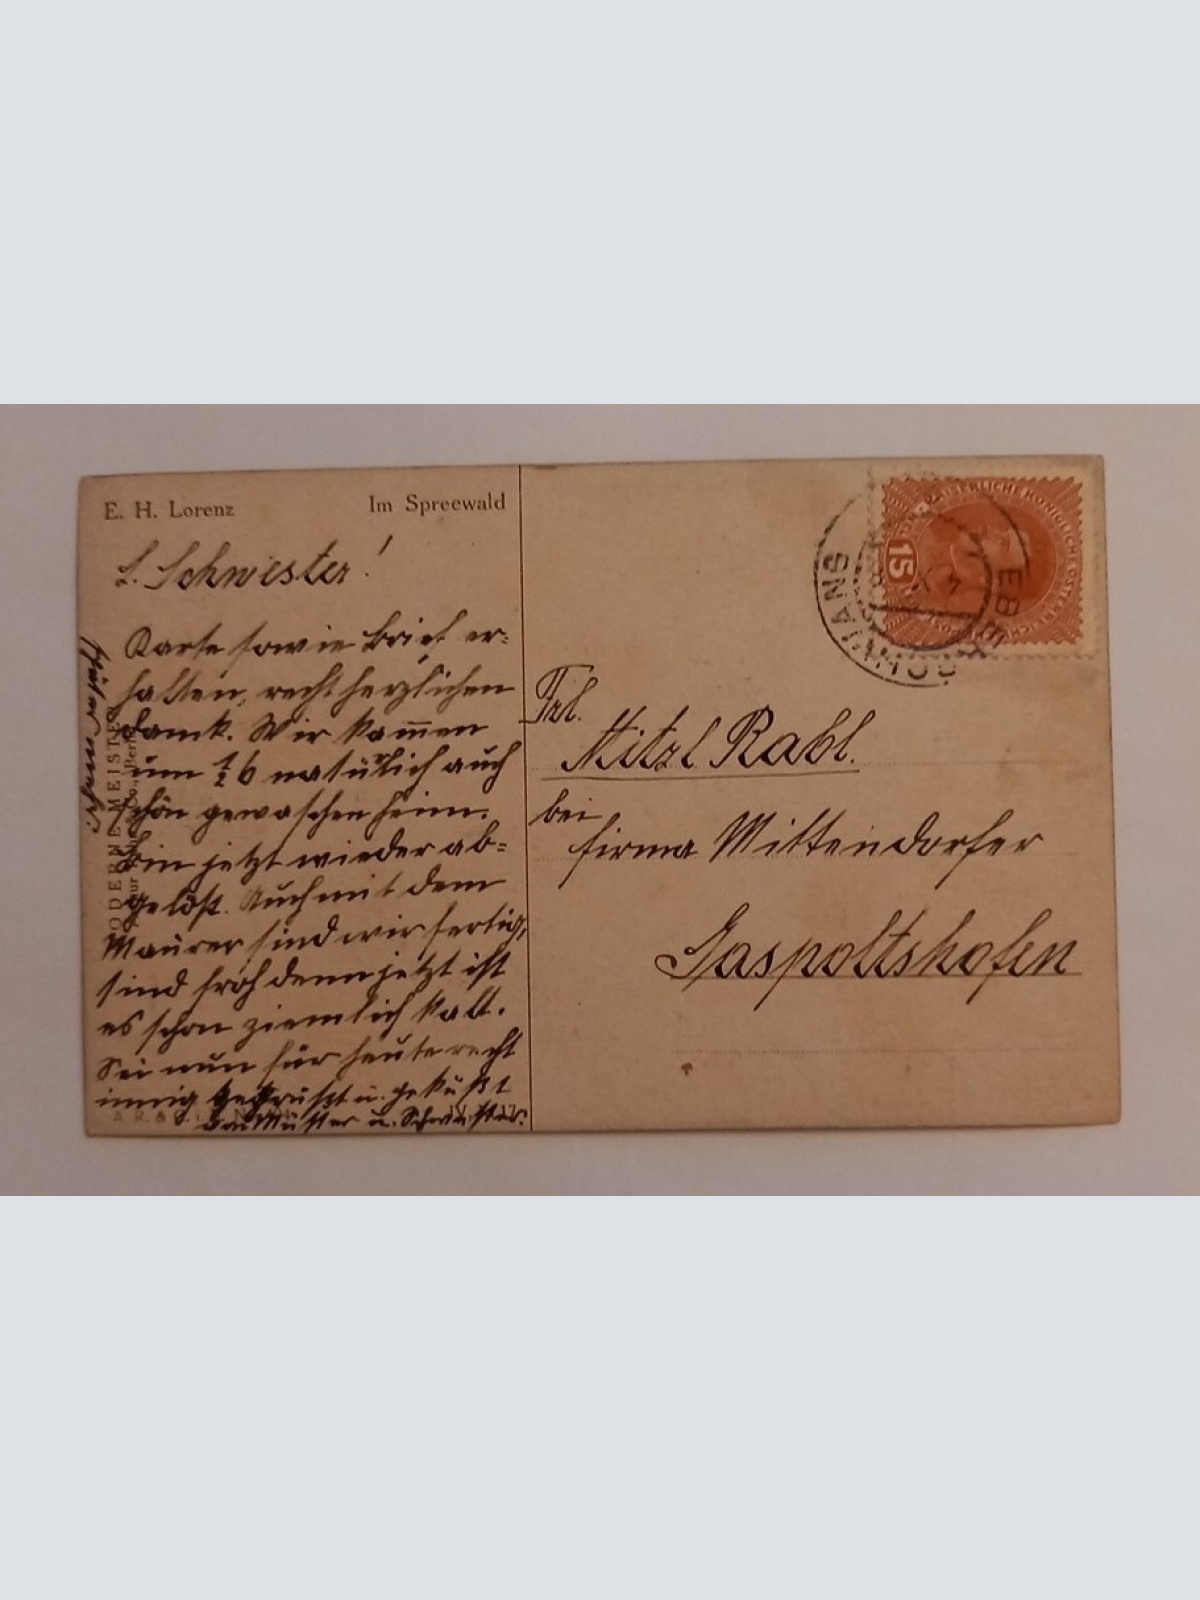 E. H. Lorenz Im Spreewald
L. Schwester!
Karte sowie Brief er-
halten, recht herzlichen
Dank. Wir kom̅en
um ½ 6 natürlich auch
schön gewaschen heim.
Bin jetzt wieder ab-
gelöst. Auch mit dem
Maurer sind wir fertig,
sind froh denn jetzt ist
es schon ziemlich kalt.
Sei nun für heute recht
innig gegrüßt u. geküßt
Mutter u. Schwester.
Später mehr.
MODERNE MEISTER
Frl.
Mitzl Rabl.
bei
Firma Mittendorfer
Gaspoltshofen
15
SCHWANS